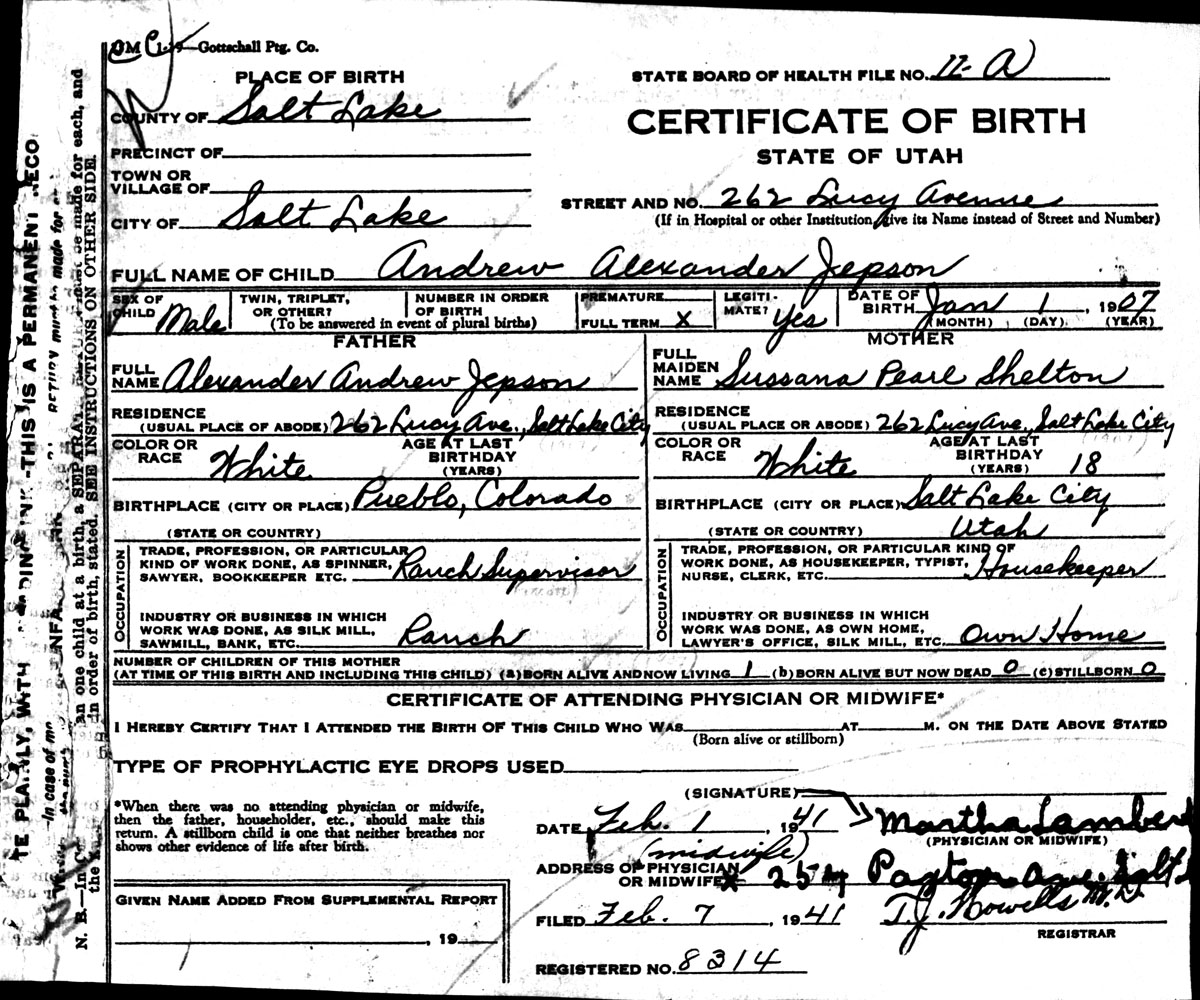 1-39—Gottschall Ptg. Co.
PLACE OF BIRTH
STATE BOARD OF HEALTH FILE NO. 11-A
COUNTY OF Salt Lake
CERTIFICATE OF BIRTH
PRECINCT OF
STATE OF UTAH
TOWN OR
VILLAGE OF
STREET AND NO. 262 Lucy Avenue
CITY OF Salt Lake
(If in Hospital or other Institution give its Name instead of Street and Number)
FULL NAME OF CHILD Andrew Alexander Jepson
SEX OF CHILD Male
TWIN, TRIPLET, OR OTHER?
NUMBER IN ORDER OF BIRTH
(To be answered in event of plural births)
PREMATURE
FULL TERM X
LEGITI-MATE? Yes
DATE OF BIRTH Jan 1, 1907
(MONTH) (DAY) (YEAR)
FATHER
FULL NAME Alexander Andrew Jepson
RESIDENCE
(USUAL PLACE OF ABODE) 262 Lucy Ave., Salt Lake City
COLOR OR RACE White
AGE AT LAST BIRTHDAY (YEARS)
BIRTHPLACE (CITY OR PLACE) Pueblo, Colorado
(STATE OR COUNTRY)
OCCUPATION
TRADE, PROFESSION, OR PARTICULAR
KIND OF WORK DONE, AS SPINNER,
SAWYER, BOOKKEEPER ETC. Ranch Supervisor
INDUSTRY OR BUSINESS IN WHICH
WORK WAS DONE, AS SILK MILL,
SAWMILL, BANK, ETC. Ranch
MOTHER
FULL MAIDEN NAME Sussana Pearl Shelton
RESIDENCE
(USUAL PLACE OF ABODE) 262 Lucy Ave., Salt Lake City
COLOR OR RACE White
AGE AT LAST BIRTHDAY (YEARS) 18
BIRTHPLACE (CITY OR PLACE) Salt Lake City
(STATE OR COUNTRY) Utah
OCCUPATION
TRADE, PROFESSION, OR PARTICULAR KIND OF
WORK DONE, AS HOUSEKEEPER, TYPIST,
NURSE, CLERK, ETC. Housekeeper
INDUSTRY OR BUSINESS IN WHICH
WORK WAS DONE, AS OWN HOME,
LAWYER'S OFFICE, SILK MILL, ETC. Own Home
NUMBER OF CHILDREN OF THIS MOTHER
(AT TIME OF THIS BIRTH AND INCLUDING THIS CHILD) (a) BORN ALIVE AND NOW LIVING 1 (b) BORN ALIVE BUT NOW DEAD 0 (c) STILLBORN 0
CERTIFICATE OF ATTENDING PHYSICIAN OR MIDWIFE*
I HEREBY CERTIFY THAT I ATTENDED THE BIRTH OF THIS CHILD WHO WAS AT M. ON THE DATE ABOVE STATED
(Born alive or stillborn)
TYPE OF PROPHYLACTIC EYE DROPS USED
*When there was no attending physician or midwife,
then the father, householder, etc., should make this
return. A stillborn child is one that neither breathes nor
shows other evidence of life after birth.
GIVEN NAME ADDED FROM SUPPLEMENTAL REPORT
, 19
(SIGNATURE)
DATE Feb. 1, 1941 Martha Lambert
(PHYSICIAN OR MIDWIFE)
(midwife)
ADDRESS OF PHYSICIAN
OR MIDWIFE 254 Paxton Ave. Salt L
FILED Feb. 7, 1941 T.J. Howells M.D.
REGISTRAR
REGISTERED NO. 8314
TE PLAINLY, WITH INK—THIS IS A PERMANENT RECO
an one child at a birth, a SEPARAT must be made for each, and
in order of birth, stated. SEE INSTRUCTIONS ON OTHER SIDE.